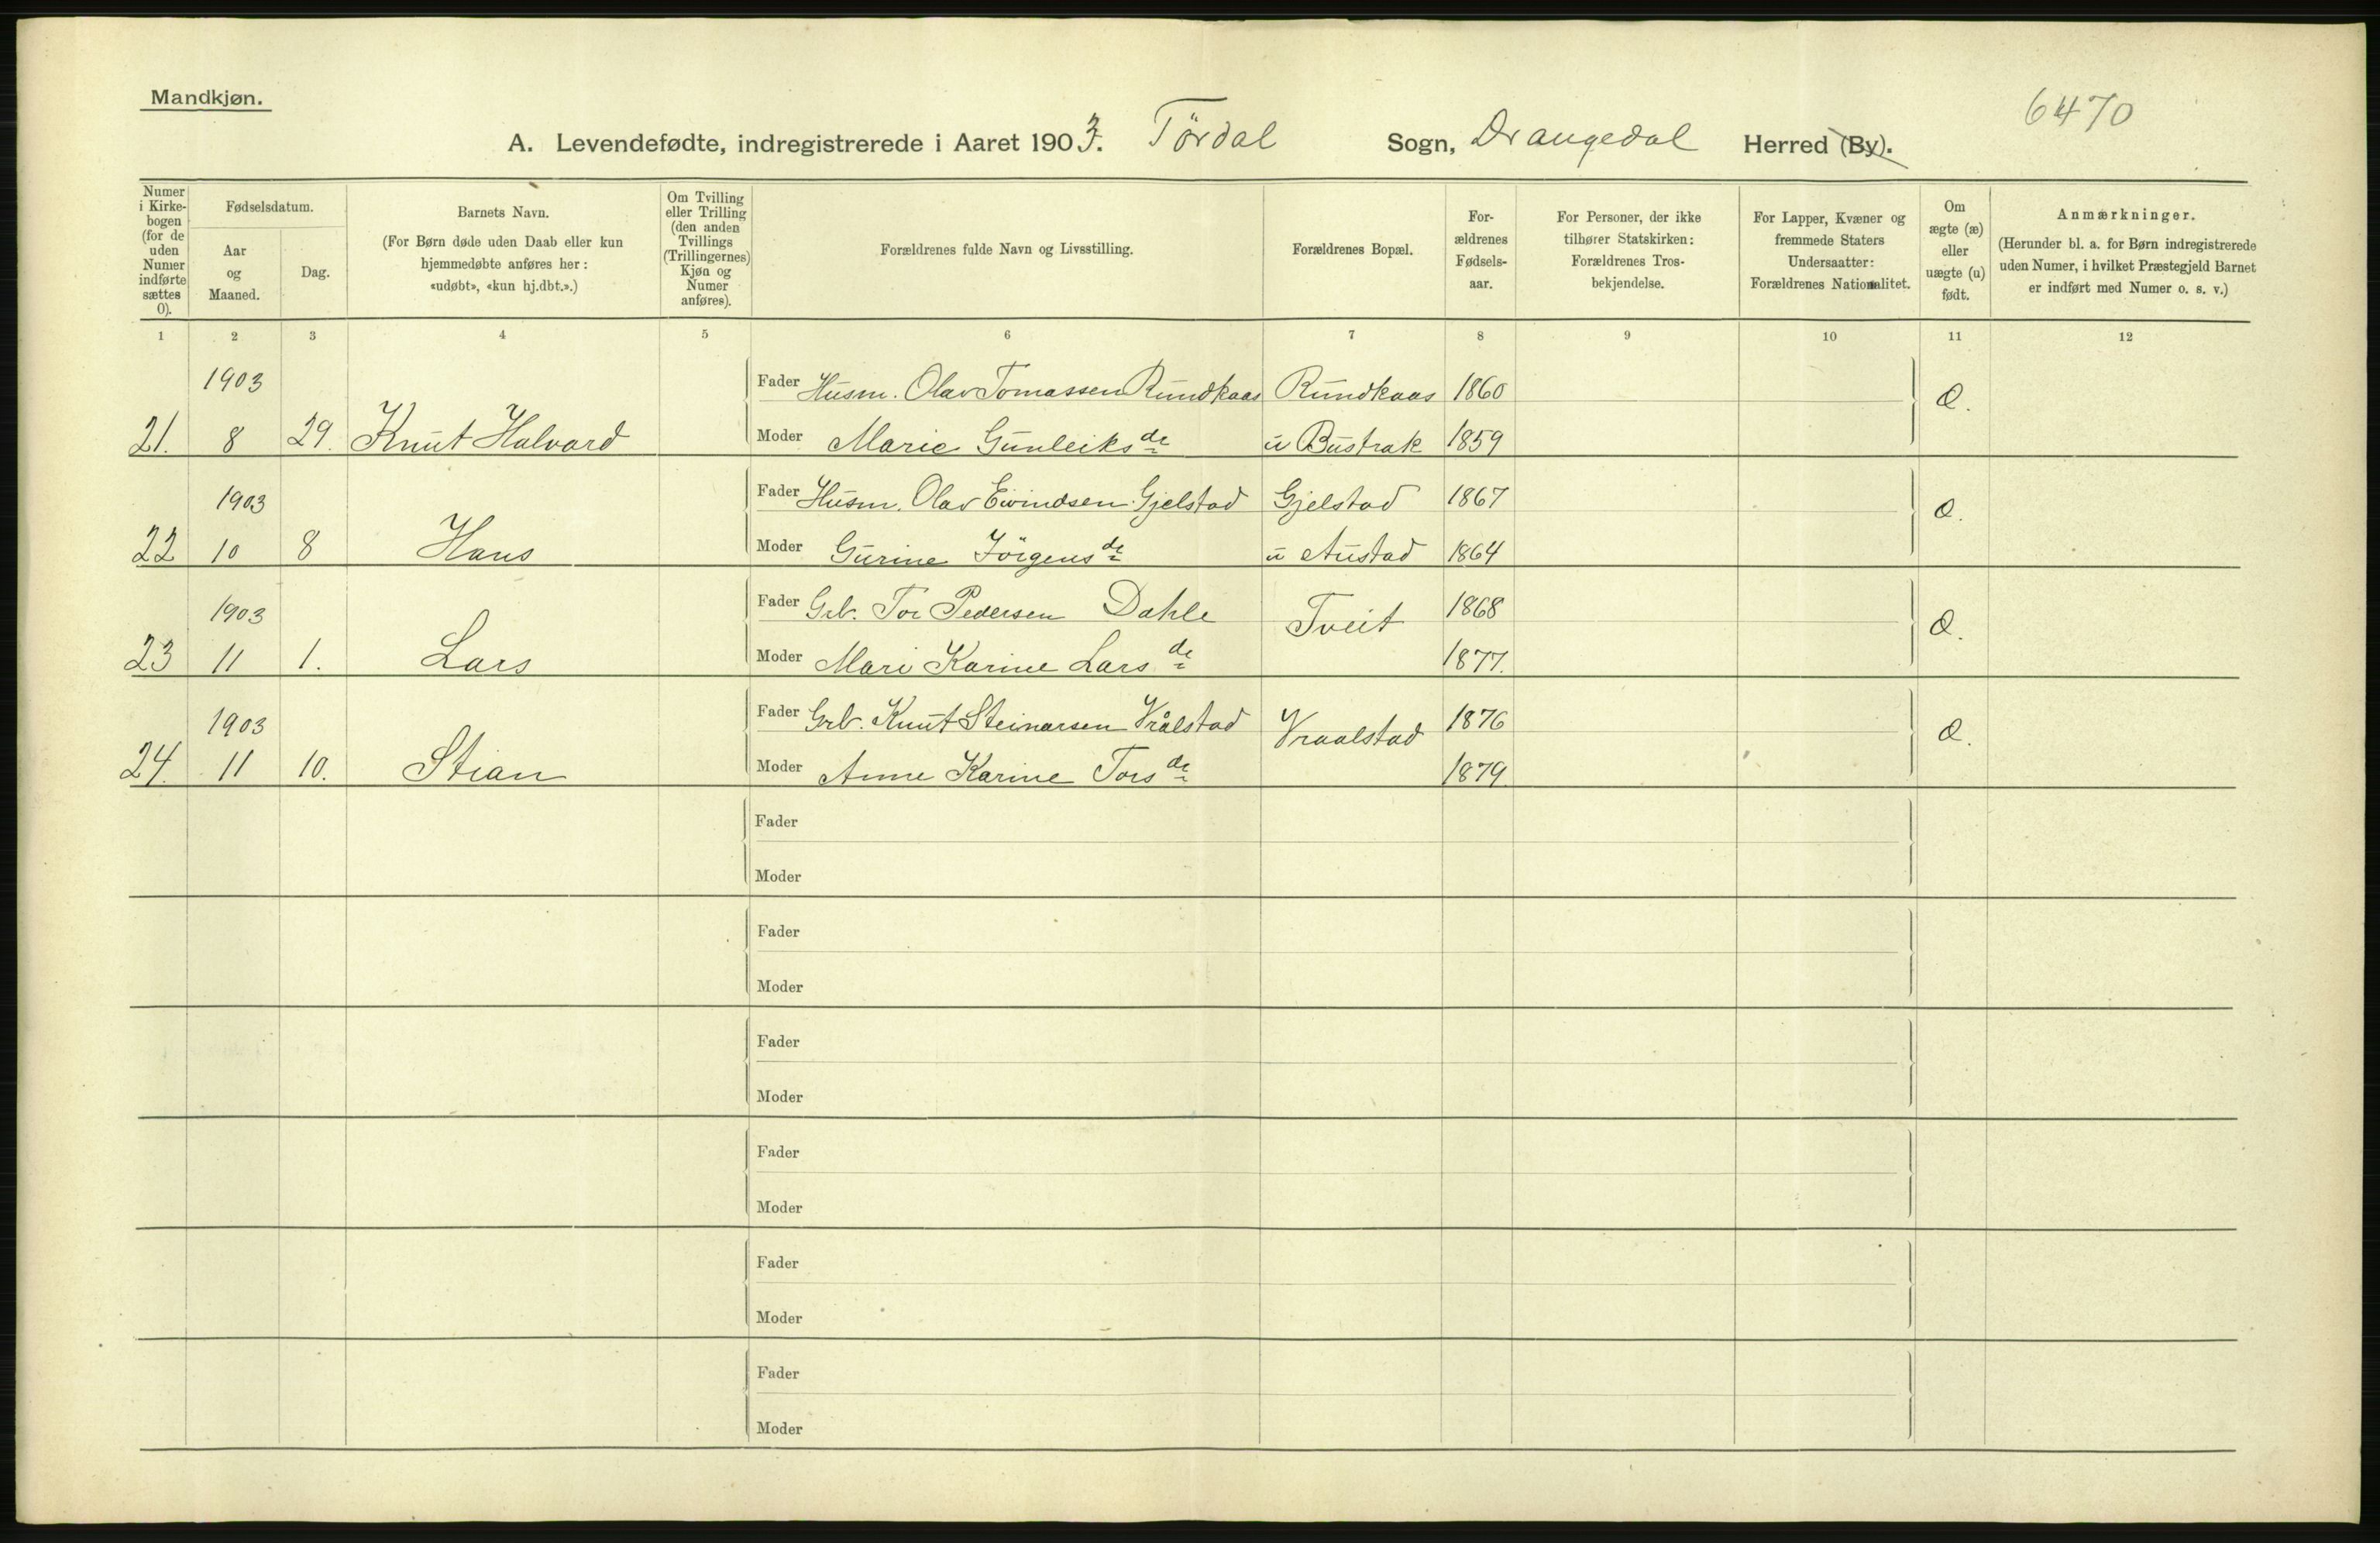 Mandkjøn.
6470
A. Levendefødte, indregistrerede i Aaret 1903. Tördal Sogn, Drangedal Herred (By).
Numer i Kirkebogen (for de uden Numer indførte sættes 0).
Fødselsdatum.
Aar og Maaned.
Dag.
Barnets Navn.
(For Børn døde uden Daab eller kun hjemmedøbte anføres her: «udøbt», «kun hj.dbt.».)
Om Tvilling eller Trilling (den anden Tvillings (Trillingernes) Kjøn og Numer anføres).
Forældrenes fulde Navn og Livsstilling.
Forældrenes Bopæl.
Forældrenes Fødselsaar.
For Personer, der ikke tilhører Statskirken: Forældrenes Trosbekjendelse.
For Lapper, Kvæner og fremmede Staters Undersaatter: Forældrenes Nationalitet.
Om ægte (æ) eller uægte (u) født.
Anmærkninger.
(Herunder bl. a. for Børn indregistrerede uden Numer, i hvilket Præstegjeld Barnet er indført med Numer o. s. v.)
1 2 3 4 5 6 7 8 9 10 11 12
1903 Fader Husm. Olav Tomassen Rundkaas Rundkaas 1860 æ.
21. 8 29. Knut Halvard Moder Marie Gunleiksdr u Bustrak 1859
1903 Fader Husm. Olav Eivindsen Gjelstad Gjelstad 1867 æ.
22 10 8 Hans Moder Gurine Jörgensdr u Austad 1864
1903 Fader Grb. Tor Pedersen Dahle Tveit 1868 æ.
23 11 1. Lars Moder Mari Karine Larsdr 1877.
1903 Fader Grb. Knut Steinarsen Vrålstad Vraalstad 1876 æ.
24. 11 10. Stian Moder Anne Karine Torsdr 1879
Fader
Moder
Fader
Moder
Fader
Moder
Fader
Moder
Fader
Moder
Fader
Moder